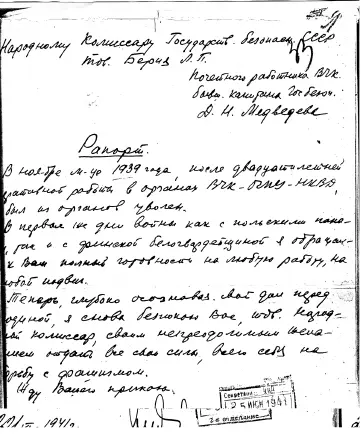 Народному Комиссару Государств. безопасн. СССР
тов. Берия Л. П.
Почетного работника ВЧК
бывш. капитана Гос безоп.
Д. Н. Медведева
Рапорт.
В ноябре м-це 1939 года, после двадцатилетней
оперативной работы в органах ВЧК-ОГПУ-НКВД
был из органов уволен.
В первые же дни войны как с польскими пана-
, так и с финской белогвардейщиной я обращал-
к Вам полный готовности на любую работу, на
любой подвиг.
Теперь, глубоко осознавая свой долг перед
родиной, я снова беспокою Вас, тов. Народ-
ный комиссар, своим непреодолимым жела-
нием отдать все свои силы, всего себя на
борьбу с фашизмом.
Жду Вашего приказа.
Секретариат НКВД
25 ИЮН 1941
2-е отделение
1941 г.